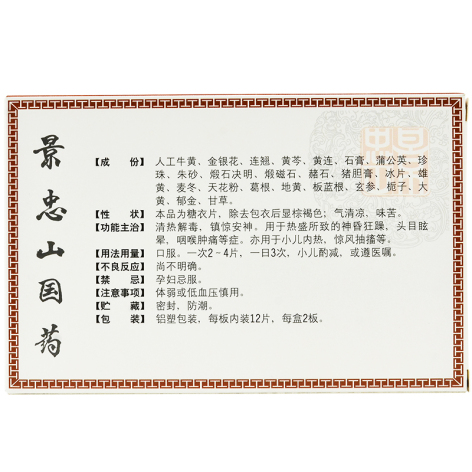 景忠山国药
【成 份】人工牛黄、金银花、连翘、黄芩、黄连、石膏、蒲公英、珍
珠、朱砂、煅石决明、煅磁石、赭石、猪胆膏、冰片、雄
黄、麦冬、天花粉、葛根、地黄、板蓝根、玄参、栀子、大
黄、郁金、甘草。
【性 状】本品为糖衣片，除去包衣后显棕褐色；气清凉，味苦。
【功能主治】清热解毒，镇惊安神。用于热盛所致的神昏狂躁，头目眩
晕，咽喉肿痛等症。亦用于小儿内热，惊风抽搐等。
【用法用量】口服。一次2-4片，一日3次，小儿酌减，或遵医嘱。
【不良反应】尚不明确。
【禁 忌】孕妇忌服。
【注意事项】体弱或低血压慎用。
【贮 藏】密封，防潮。
【包 装】铝塑包装，每板内装12片，每盒2板。